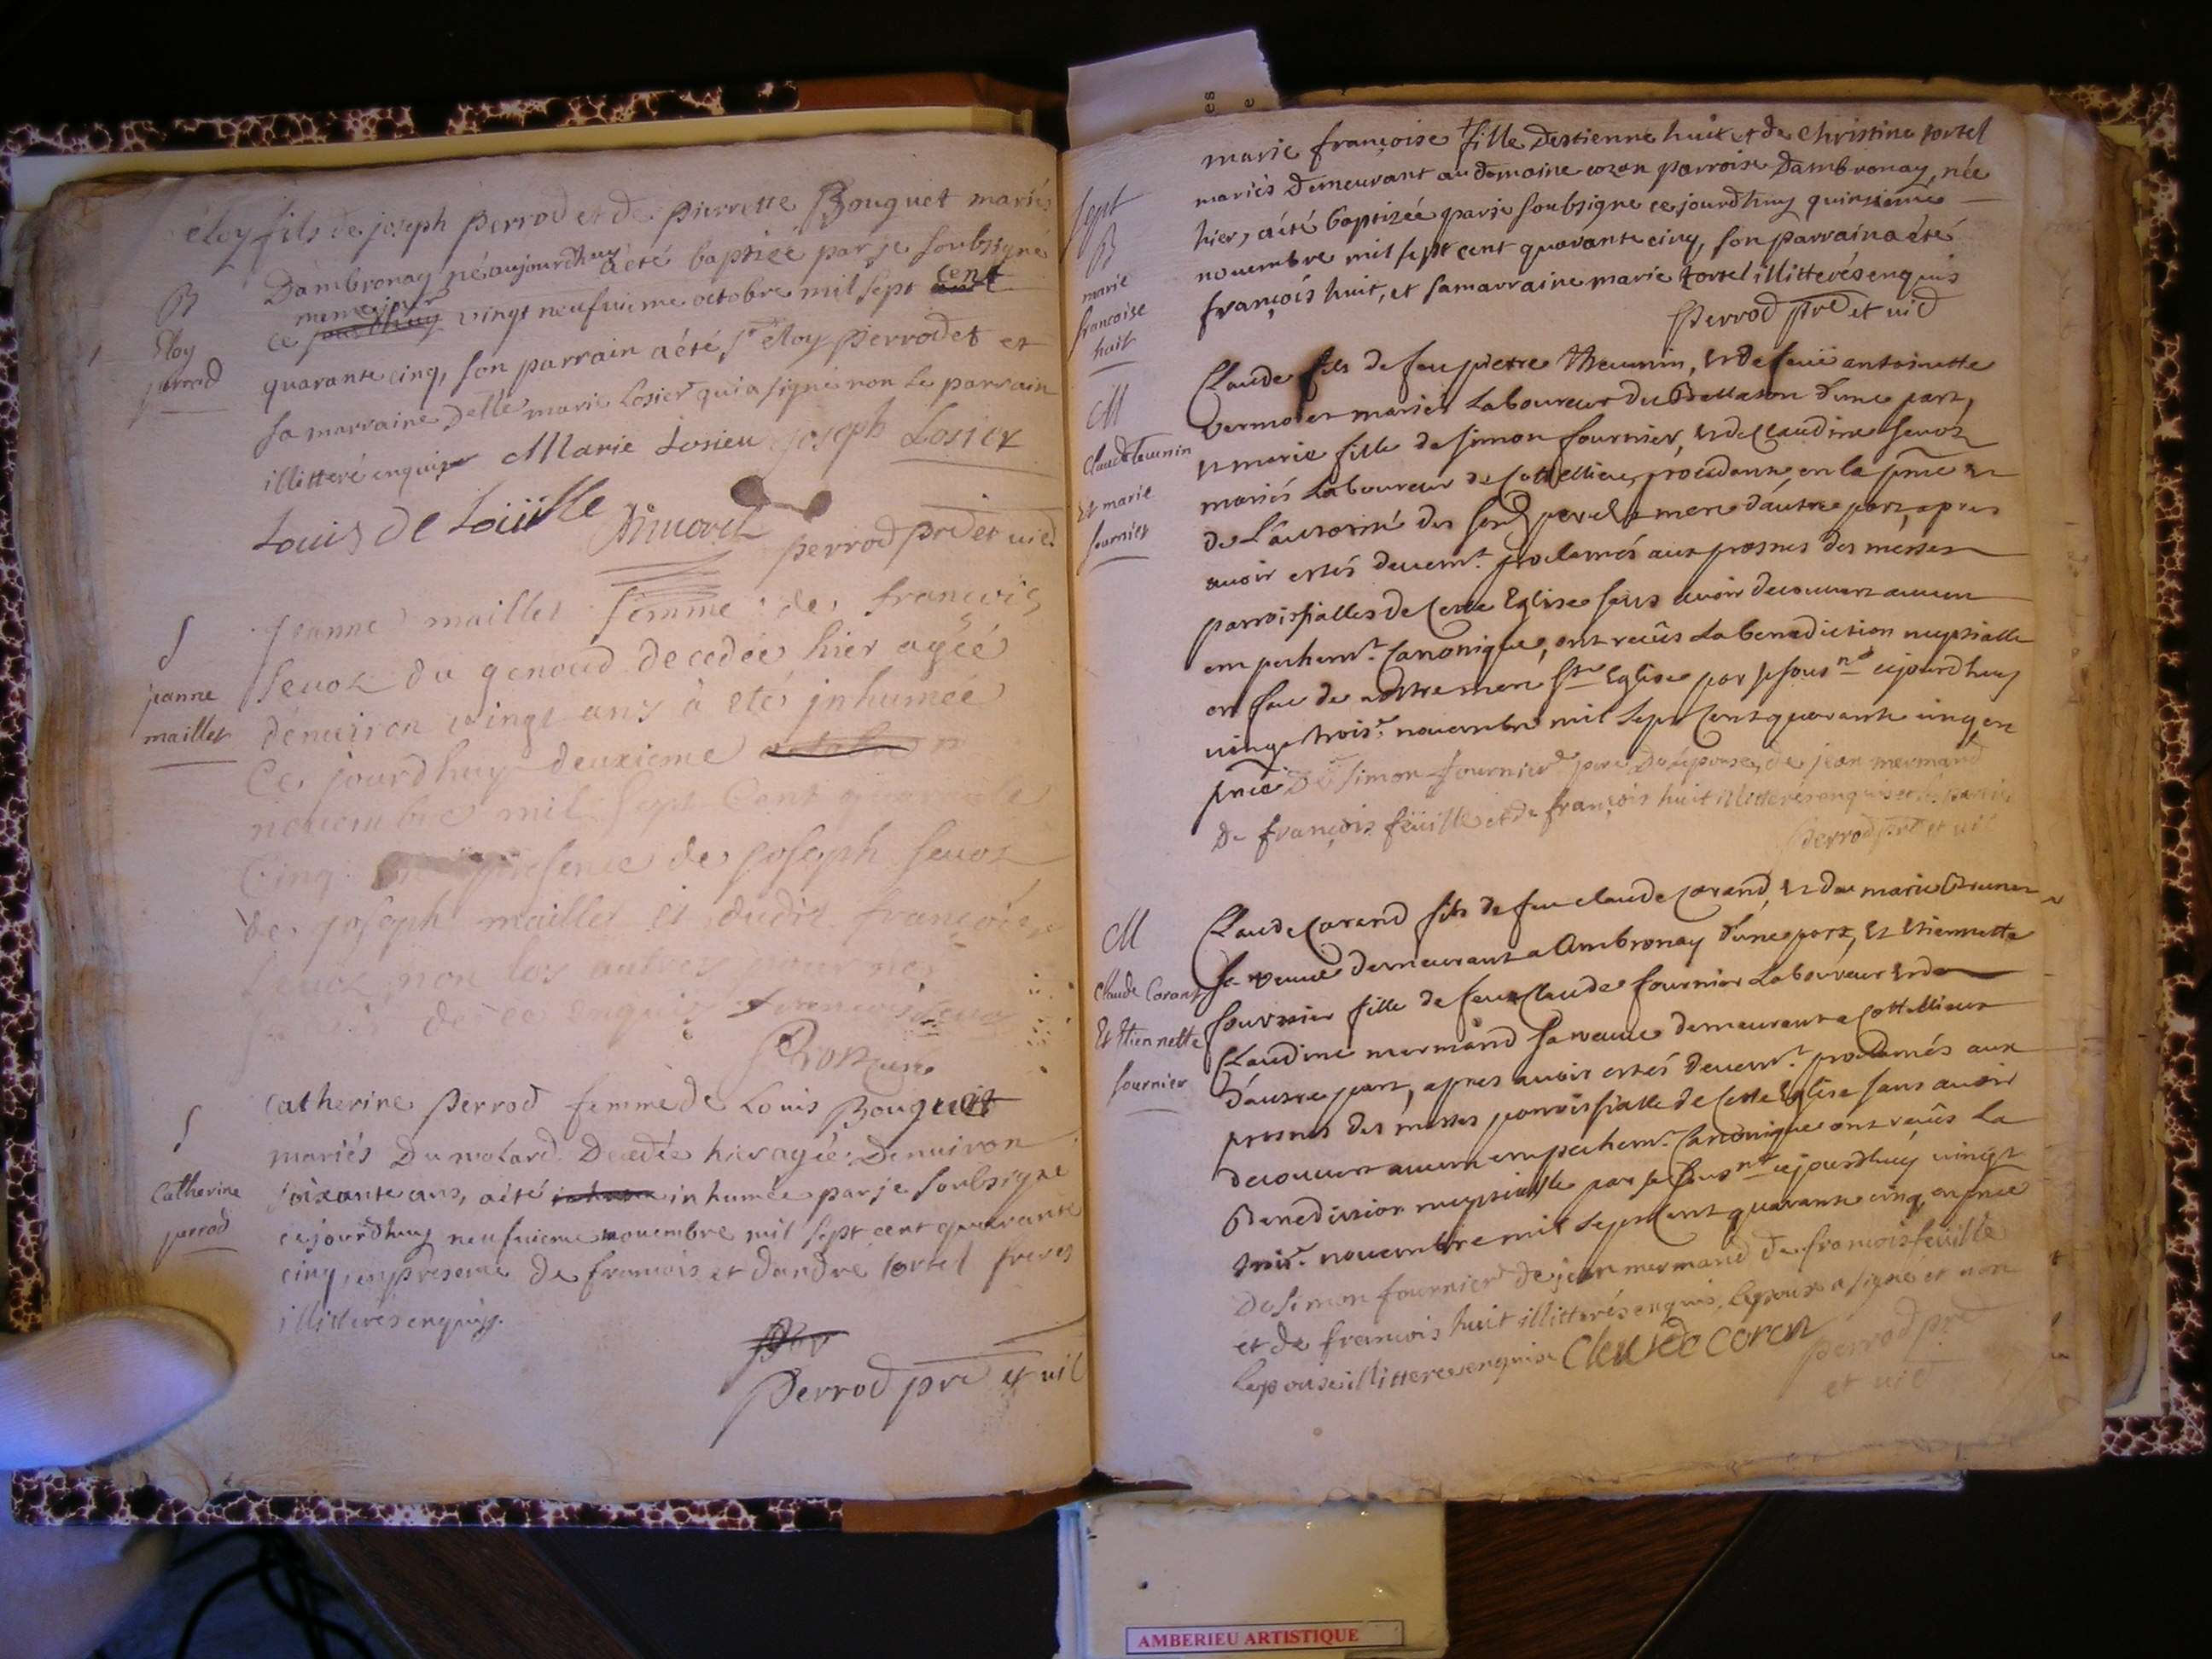 éloy fils de joseph perrod et de pierrette Bouquet mariés
Dambronay né aujourdhuy a été baptizé par je soubsigné
ce meme jour vingt neufuieme octobre mil sept cent
quarante cinq, son parrain a été sr eloy perrod et
sa marraine Delle marie Losier qui a signé non le parrain
illitteré enquis Marie Losieu joseph Losier
Louis de Loüille
perrod pre et uic
B
Eloy
perrod
jeanne maillet femme de francois
seuoz du genoud decedée hier agée
denuiron vingt ans a eté jnhumée
Ce jourdhuy deuxieme
nouembre mil sept Cent quarante
Cinq presence de joseph seuoz
de joseph maillet et dudit francois
seuoz non les autres pour ne
de ce enquis francois seuoz
S
jeanne
maillet
Catherine perrod femme de Louis Bouquet
mariés du molard Decedée hier agée Denuiron
soixante ans, a été inhumée par je soubsigne
cejourdhuy neufuieme nouembre mil sept cent quarante
cinq, en presence de francois et dandré tortel freres
illitterés enquis.
perrod pre et uic
S
Catherine
perrod
marie françoise fille Destienne huit et de Christine tortel
mariés Demeurant au domaine cozon parroise Dambronay, née
hier, a été baptizée par je soubsigne ce jourdhuy quinzieme
nouembre mil sept cent quarante cinq, son parrain a été
françois huit, et sa marraine marie tortel illitterés enquis
perrod pre et uic
sept
B
marie
francoise
huit
Claude fils de feu pierre Theuenin, et de feüe antoinette
Vermoret mariés Laboureur du Bellaton dune part,
et marie fille de simon fournier, et de Claudine seuoz
mariés Laboureur de Cottellieu, procedante en la pnce et
de Lautorité des sesd pere et mere dautre part, apres
auoir estés deuemt. proclamés aux prosnes des messes
parroissialles de Cette Eglise sans auoir decouuert aucun
empechemt. Canonique, ont reçûs La benediction nuptialle
en face de nostre mere ste Eglise par je sousné cejourdhuy
vingt trois.e nouembre mil sept Cent quarante cinq en
pnce De simon fournier pere De lepouse, de jean mermand
De françois feüille et de françois huit illitterés enquis
perrod pre et uic
M
Claude teuenin
Et marie
fournier
Claude Corand fils de feu claude Corand, et de marie Brunet
sa veuue demeurant a Ambronay d'une part, Et Etiennette
fournier fille de feu Claude fournier Laboureur et de
Claudine mermand sa veuue demeurante a Cottellieux
d'autre part, apres auoir estés deuemt. proclamés aux
prosnes des messes parroissialle de Cette Eglise sans auoir
decouuert aucun empechemt. Canonique ont reçûs La
Benediction nuptialle par je sousné cejourdhuy vingt
trois.e nouembre mil sept Cent quarante cinq, en pnce
De simon fournier de jean mermand de francois feuille
et de francois huit illitterés enquis, lepoux a signé et non
lepouse illitteree enquise Cleude coron perrod pre
et uic
M
Claude Corant
Et Etiennette
fournier
AMBERIEU ARTISTIQUE